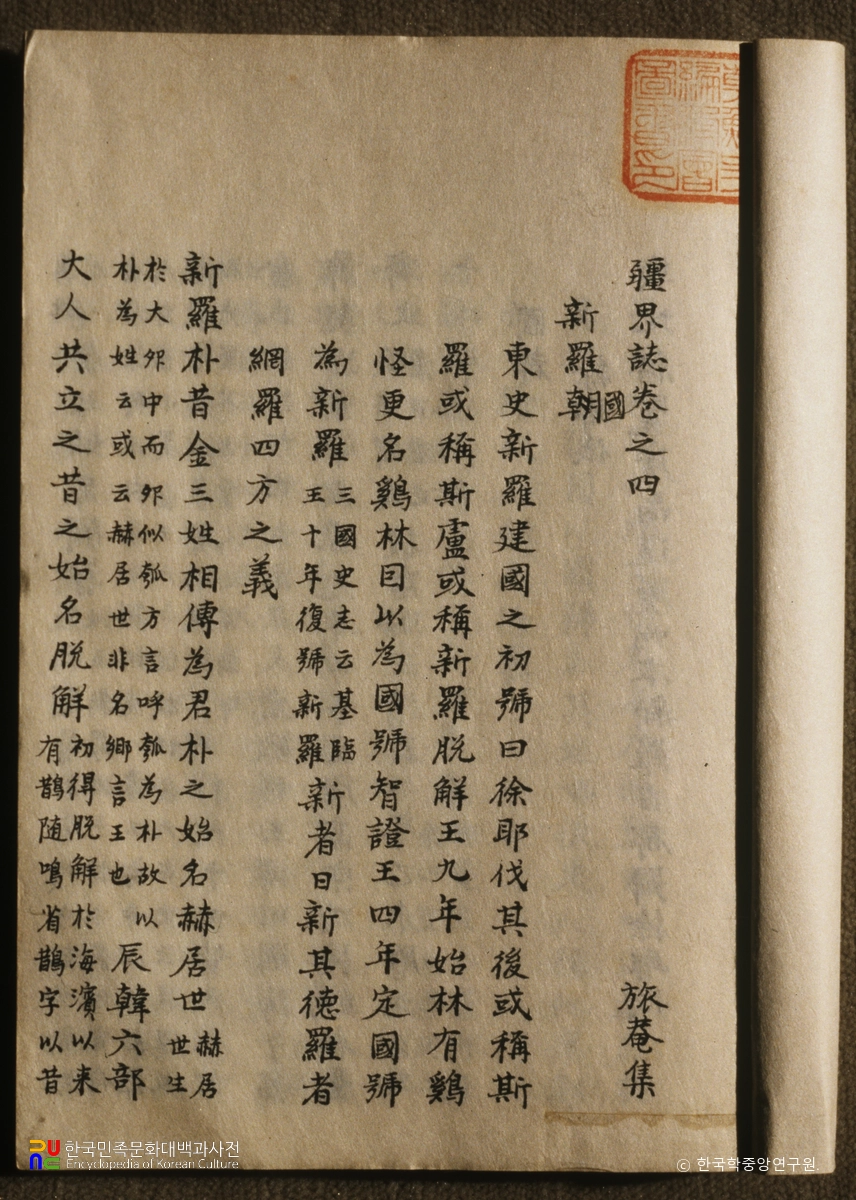 疆界誌卷之四 旅菴集
新羅朝國
東史新羅建國之初號曰徐耶伐其後或稱斯
羅或稱斯盧或稱新羅脱解王九年始林有鷄
怪更名鷄林因以為國號智證王四年定國號
為新羅三國史志云基臨王十年復號新羅新者日新其德羅者
網羅四方之義
新羅朴昔金三姓相傳為君朴之始名赫居世赫居世生
於大卵中而卵似瓠方言呼瓠為朴故以朴為姓云或云赫居世非名鄉言王也辰韓六部
大人共立之昔之始名脱解初得脱解於海濱以来有鵲随鳴省鵲字以昔
한국민족문화대백과사전
Encyclopedia of Korean Culture
© 한국학중앙연구원